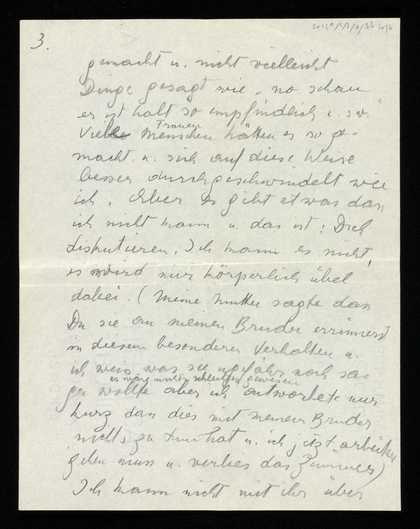 3.
gemacht u. nicht vielleicht
Dinge gesagt wie „no schau
er ist halt so empfindlich u. s.w.
Viele Menschen hätten es so ge-
Frauen
macht u. sich auf diese Weise
besser durchgeschwindelt wie
ich. Aber es gibt etwas dass
ich nicht kann u. das ist: Dich
disputieren. Ich kann es nicht,
es wird mir körperlich übel
dabei. (Meine Mutter sagte dass
Du sie an meinen Bruder erinnerst
in diesem besonderen Verhalten u.
ich weis was sie ungefähr noch sa-
gen wollte aber ich antwortete nur
kurz dass dies mit meinem Bruder
nichts zu tun hat u. ich jetzt arbeiten
gehen muss u. verlies das Zimmer)
Ich kann nicht mit ihr über